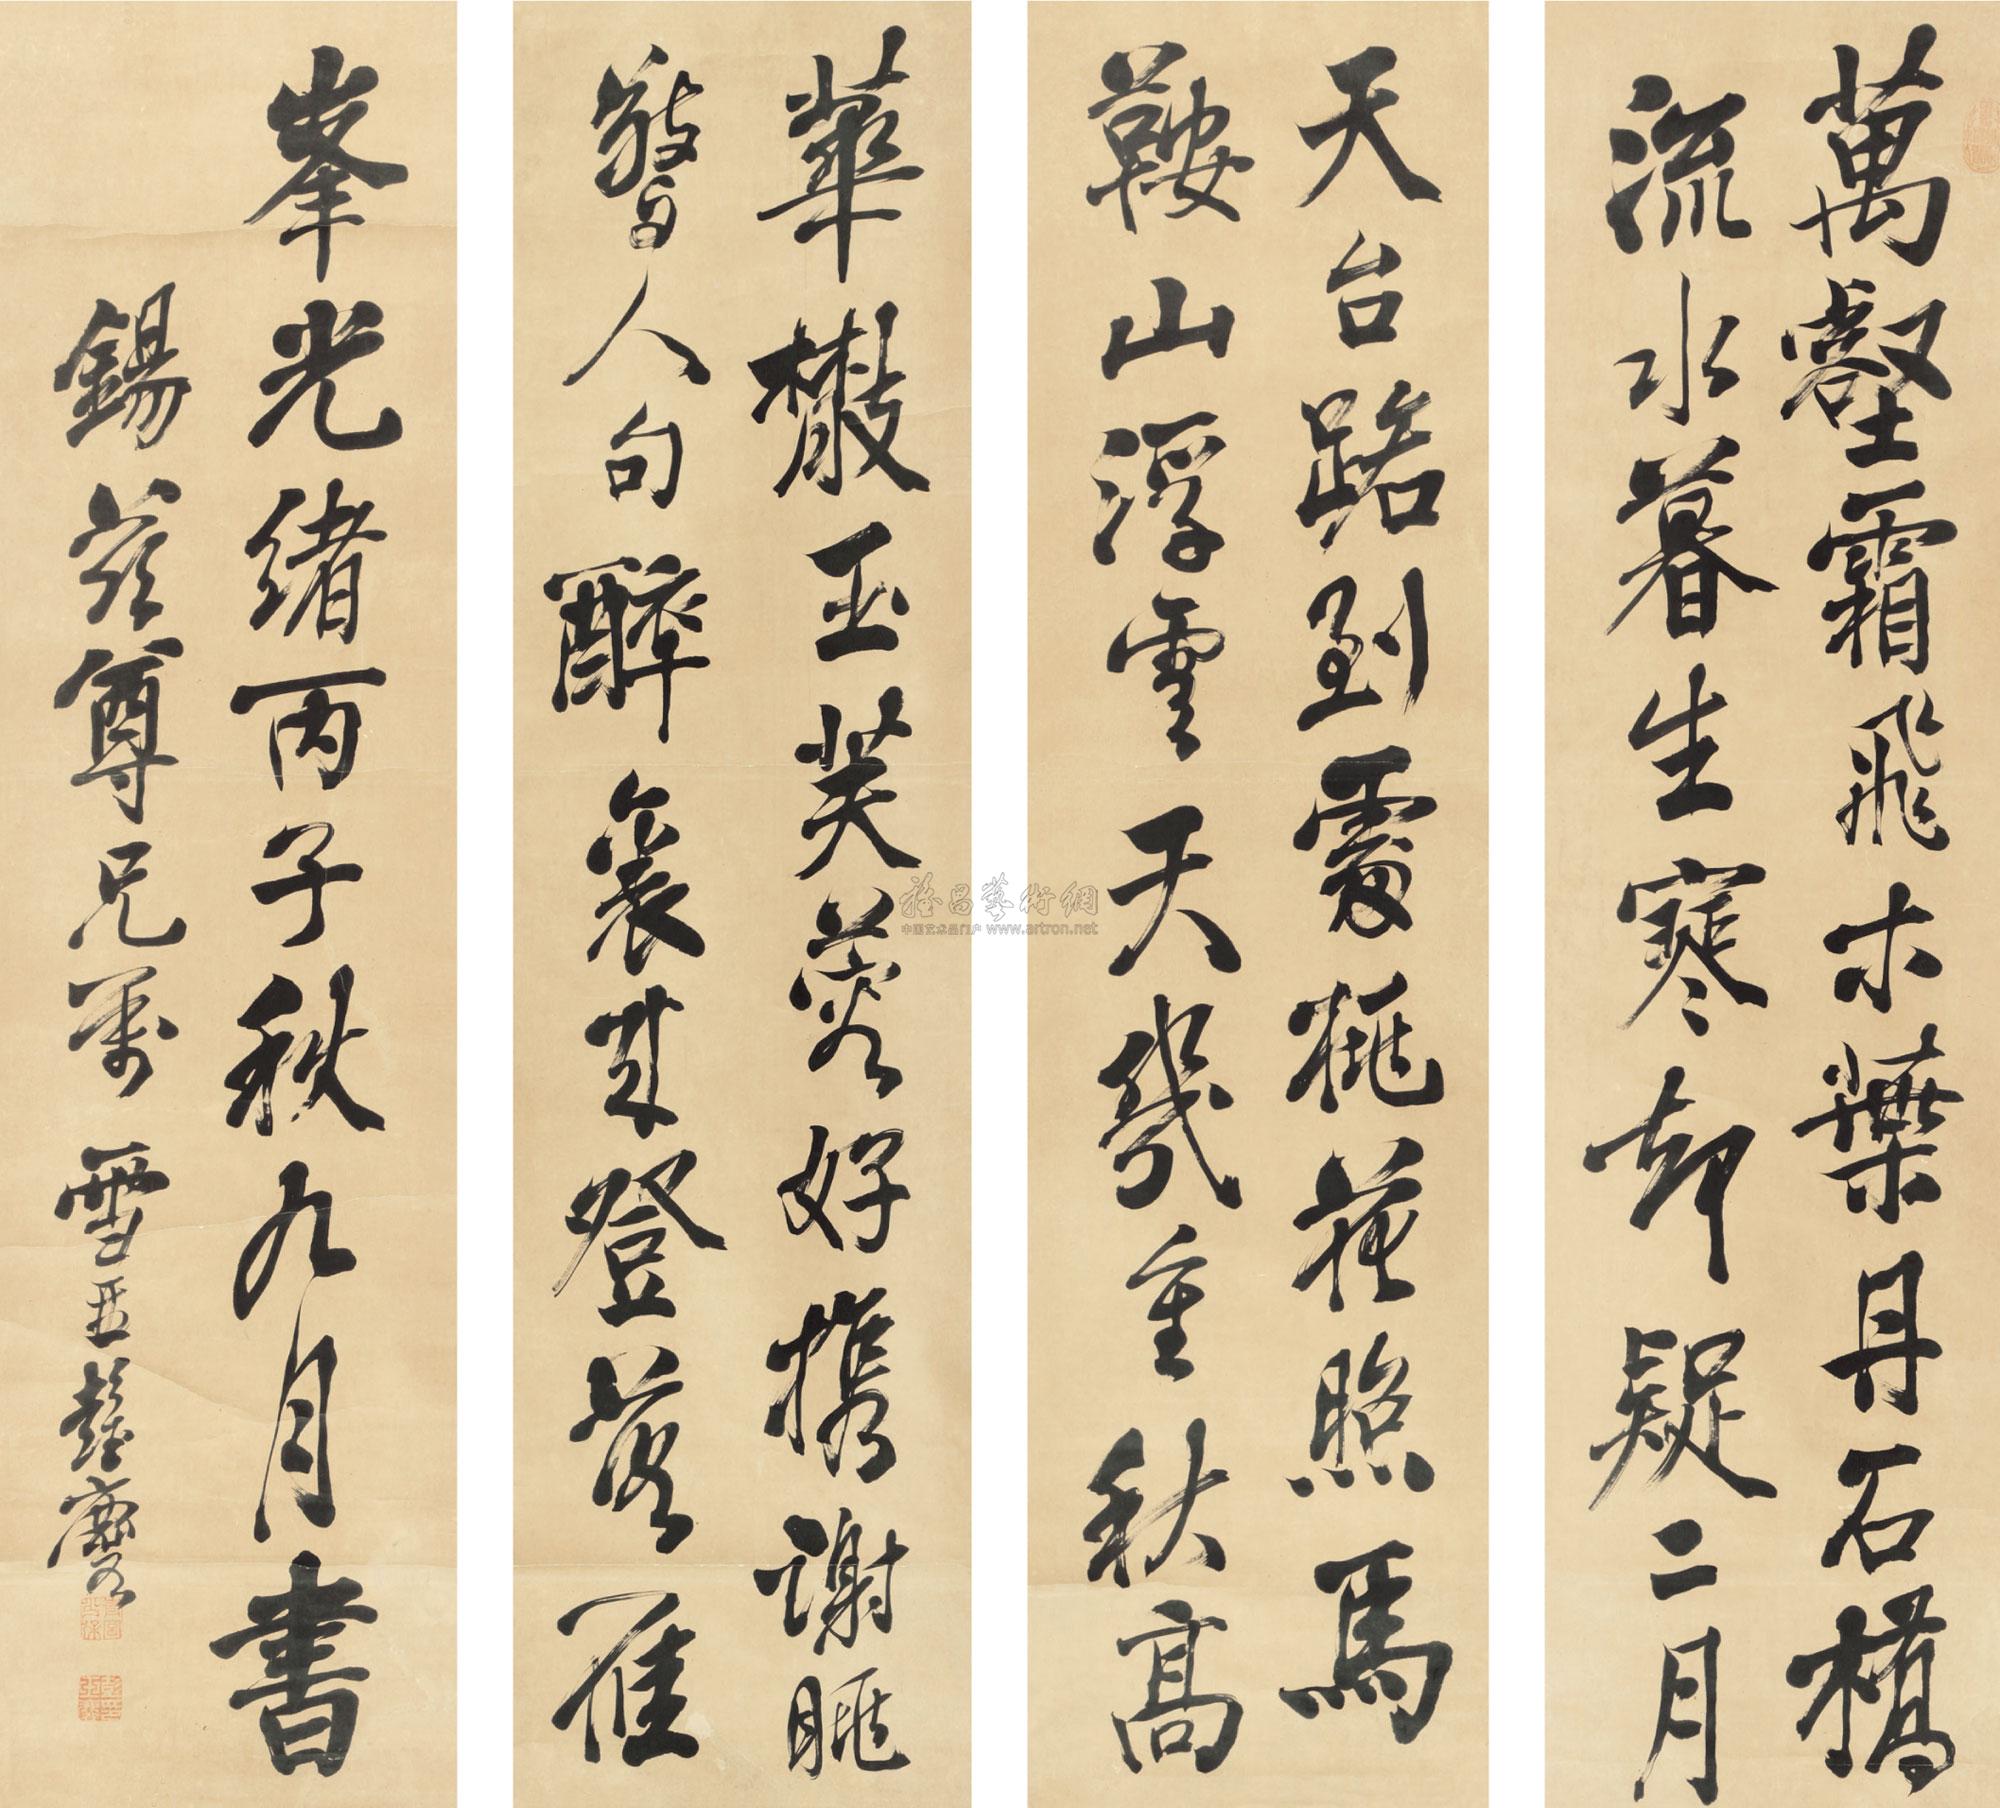 萬壑霜飛木葉丹石橋
流水暮生寒却疑二月
天台路到處桃花照馬
鞍山浮雲天幾重秋高
華嶽玉芙蓉好携謝朓
驚人句醉裏來登落雁
峯光緒丙子秋九月書
錫茲尊兄屬 雪
雅昌藝術網
中国艺术品门户 www.artron.net